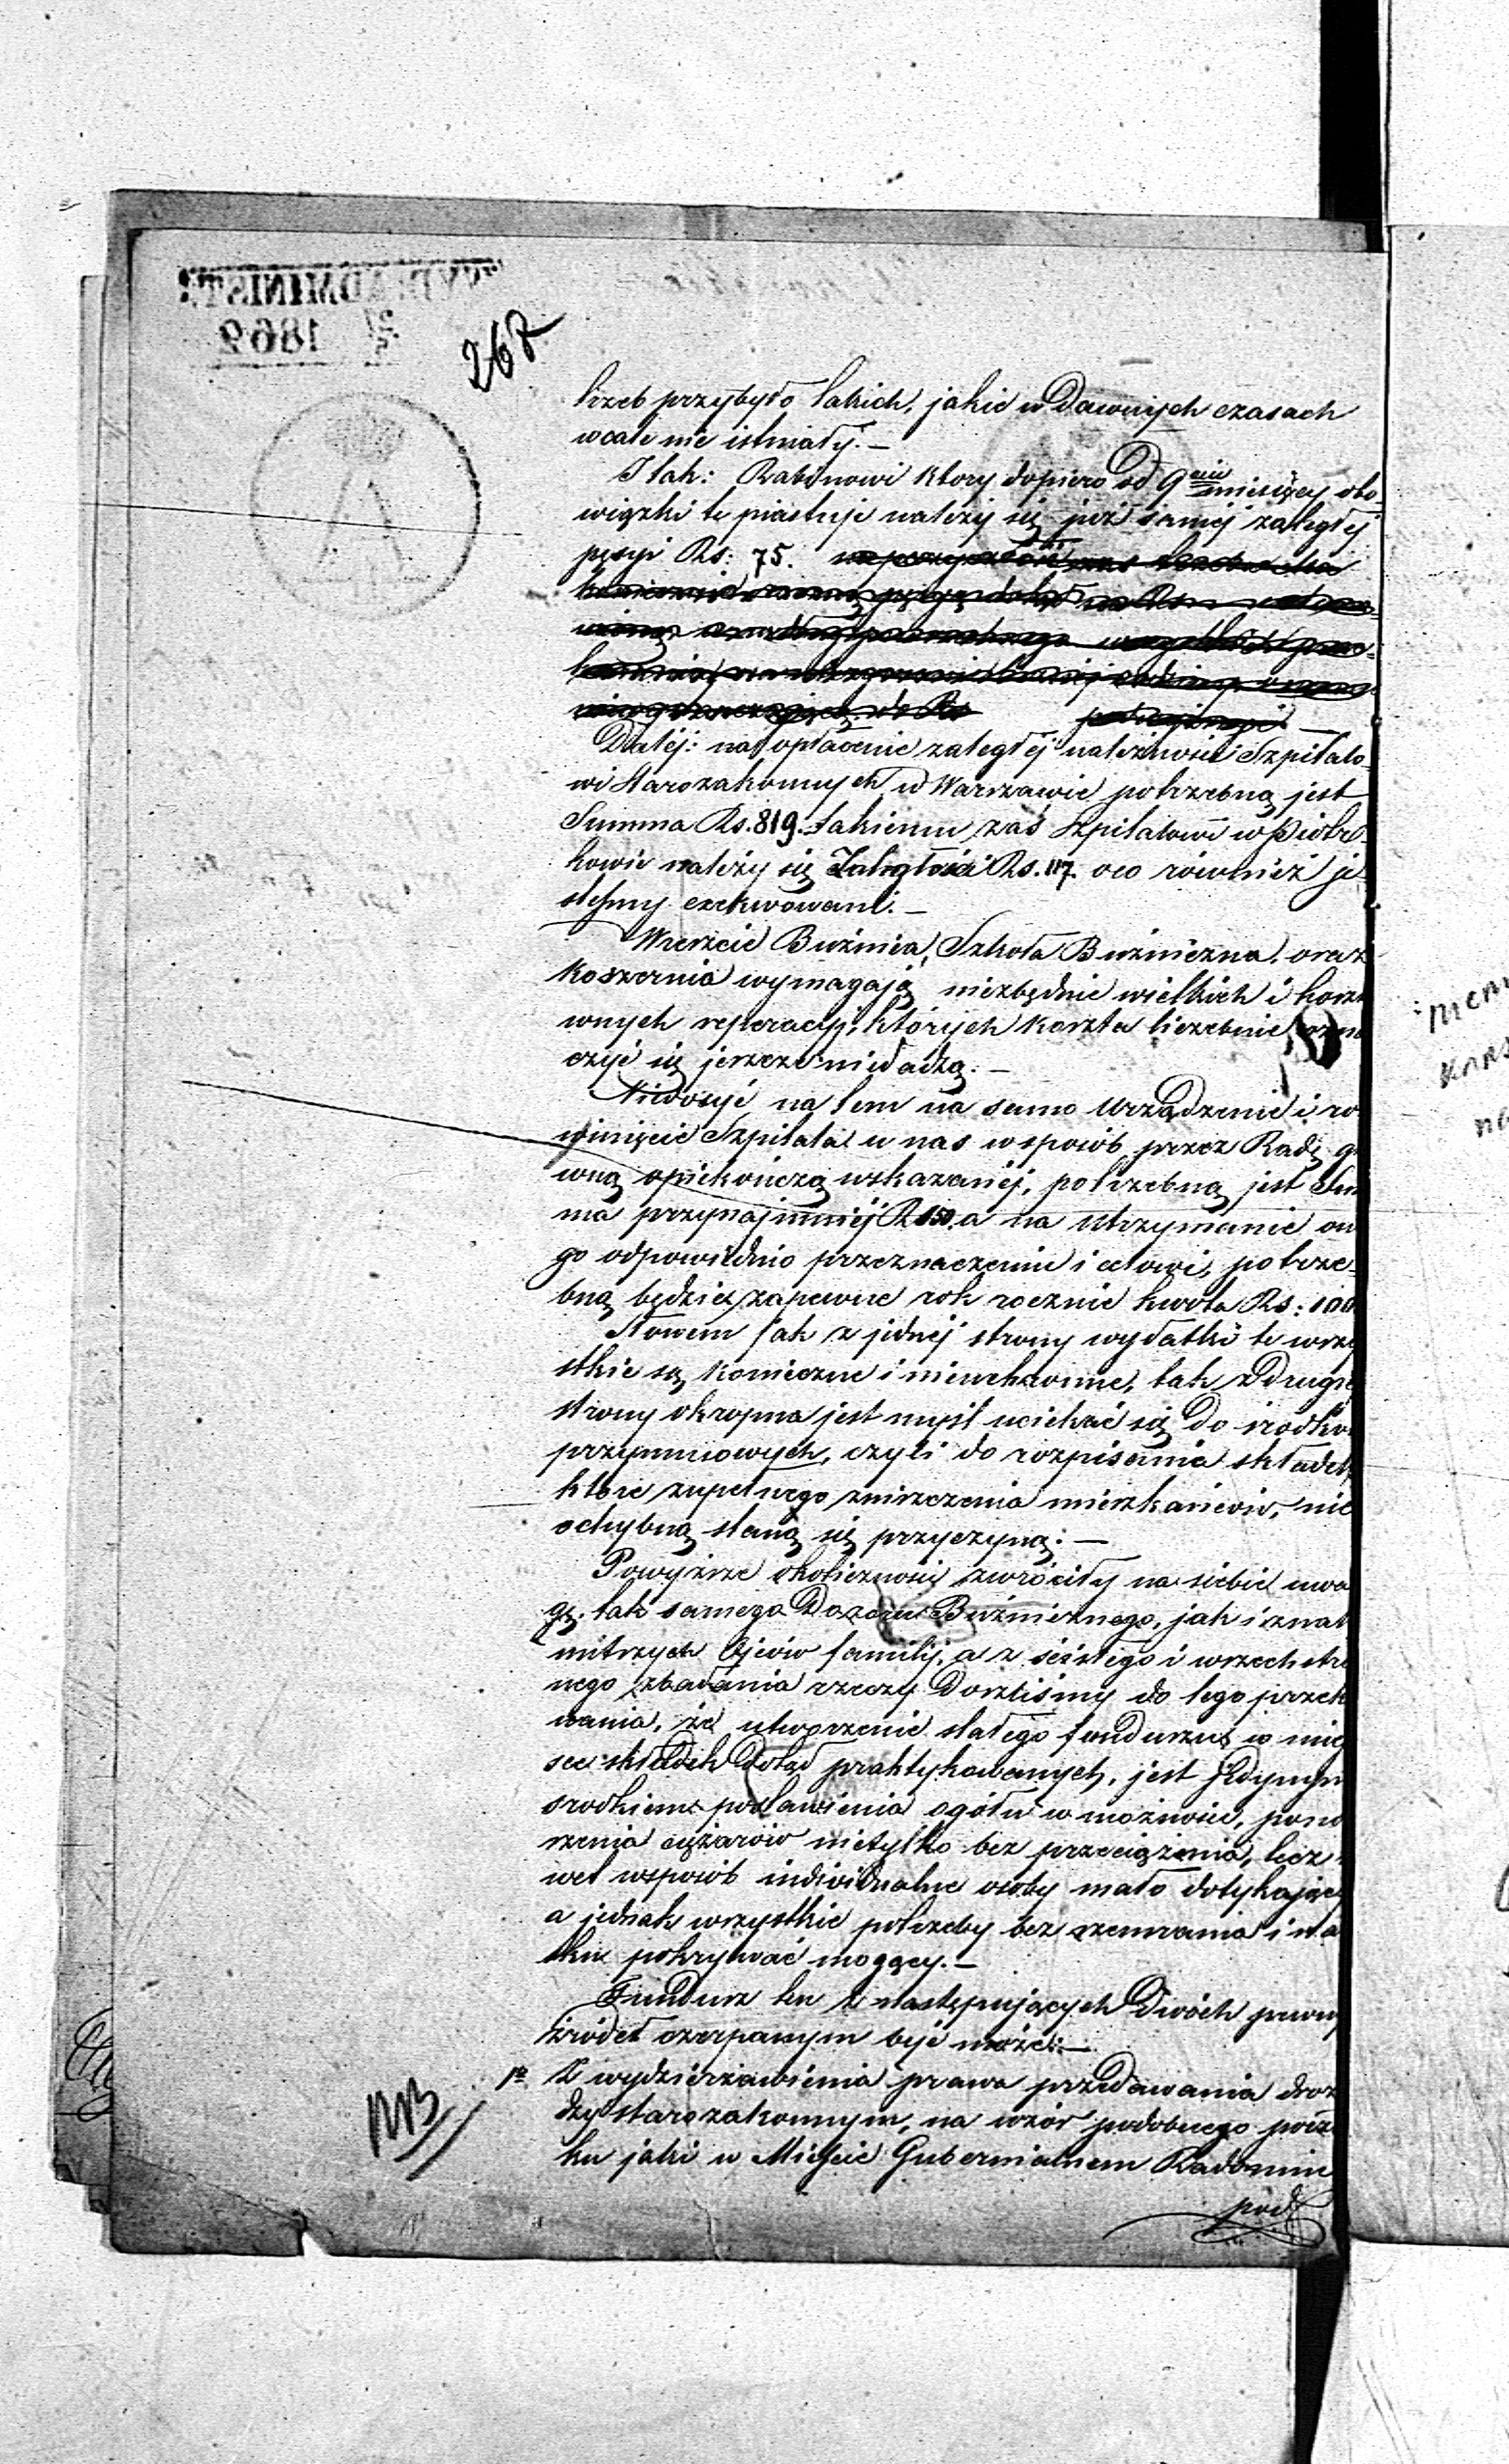 1862
267
trzeb przybyło takich, jakie w dawnych czasach
wcale nie istniały. —
I tak: Rabinowi który dopiero od 9ciu miesięcy obo-
wiązki te piastuje należy się już samej zaległej
pęsyi Rs: 75.
Dalej: na opłacenie zaległej należności Szpitalo-
wi Starozakonnych w Warszawie potrzebną jest
Summa Rs. 819. takiemu zaś Szpitalowi w Piotr-
kowie należy się Zaległości Rs. 117. oco również je-
steśmy exekwowani. —
Wreszcie Bużnica, Szkoła Bużniczna, oraz
Koszernia wymagają niezbędnie wielkich i kosz
wnych reperacyj, których koszta liczebnie
czyć się jeszcze niedadzą. —
Niedosyć na tem na samo Urządzenie i ro
winięcie Szpitala u nas w sposób przez Radę g
wną opiekuńczą wskazanéj, potrzebną jest Sum
ma przynajmniéj R 150. a na utrzymanie on
go odpowiednio przeznaczeniu i celowi, potrze-
bną będzie zapewne rok rocznie kwota Rs: 100
Słowem jak z jednéj strony wydatki te wszy
stkie są konieczne i nieuchronne, tak z drugié
strony okropna jest myśl uciekać się do środkó
przymusowych, czyli do rozpisania składek
które zupełnego zniszczenia mieszkańców, nie
ochybną staną się przyczyną. —
Powyższe okoliczności zwróciły na siebie uwa
gę tak samego Dozoru Bużnicznego, jak i znak
mitszych Ojców familij, a z ścisłego i wszechstro
nego zbadania rzeczy doszliśmy do tego przek
wania, że utworzenie stałego funduszu w miej
sce składek dotąd praktykowanych, jest jedynym
środkiem postawienia ogółu w możności, pono
szenia ciężarów nietylko bez przeciążenia, lecz n
wet w sposób indiwidualne osoby mało dotykając
a jednak wszystkie potrzeby bez szemrania i na
sku pokrywać mogący. —
Fundusz ten z następujących dwóch pewny
źródeł czerpanym być może: —
1o Z wydzierżawienia prawa przedawania droż
dży starozakonnym, na wzór podobnego poży
ku jaki w Mieście Gubernialnem Radomiu
pod
NB